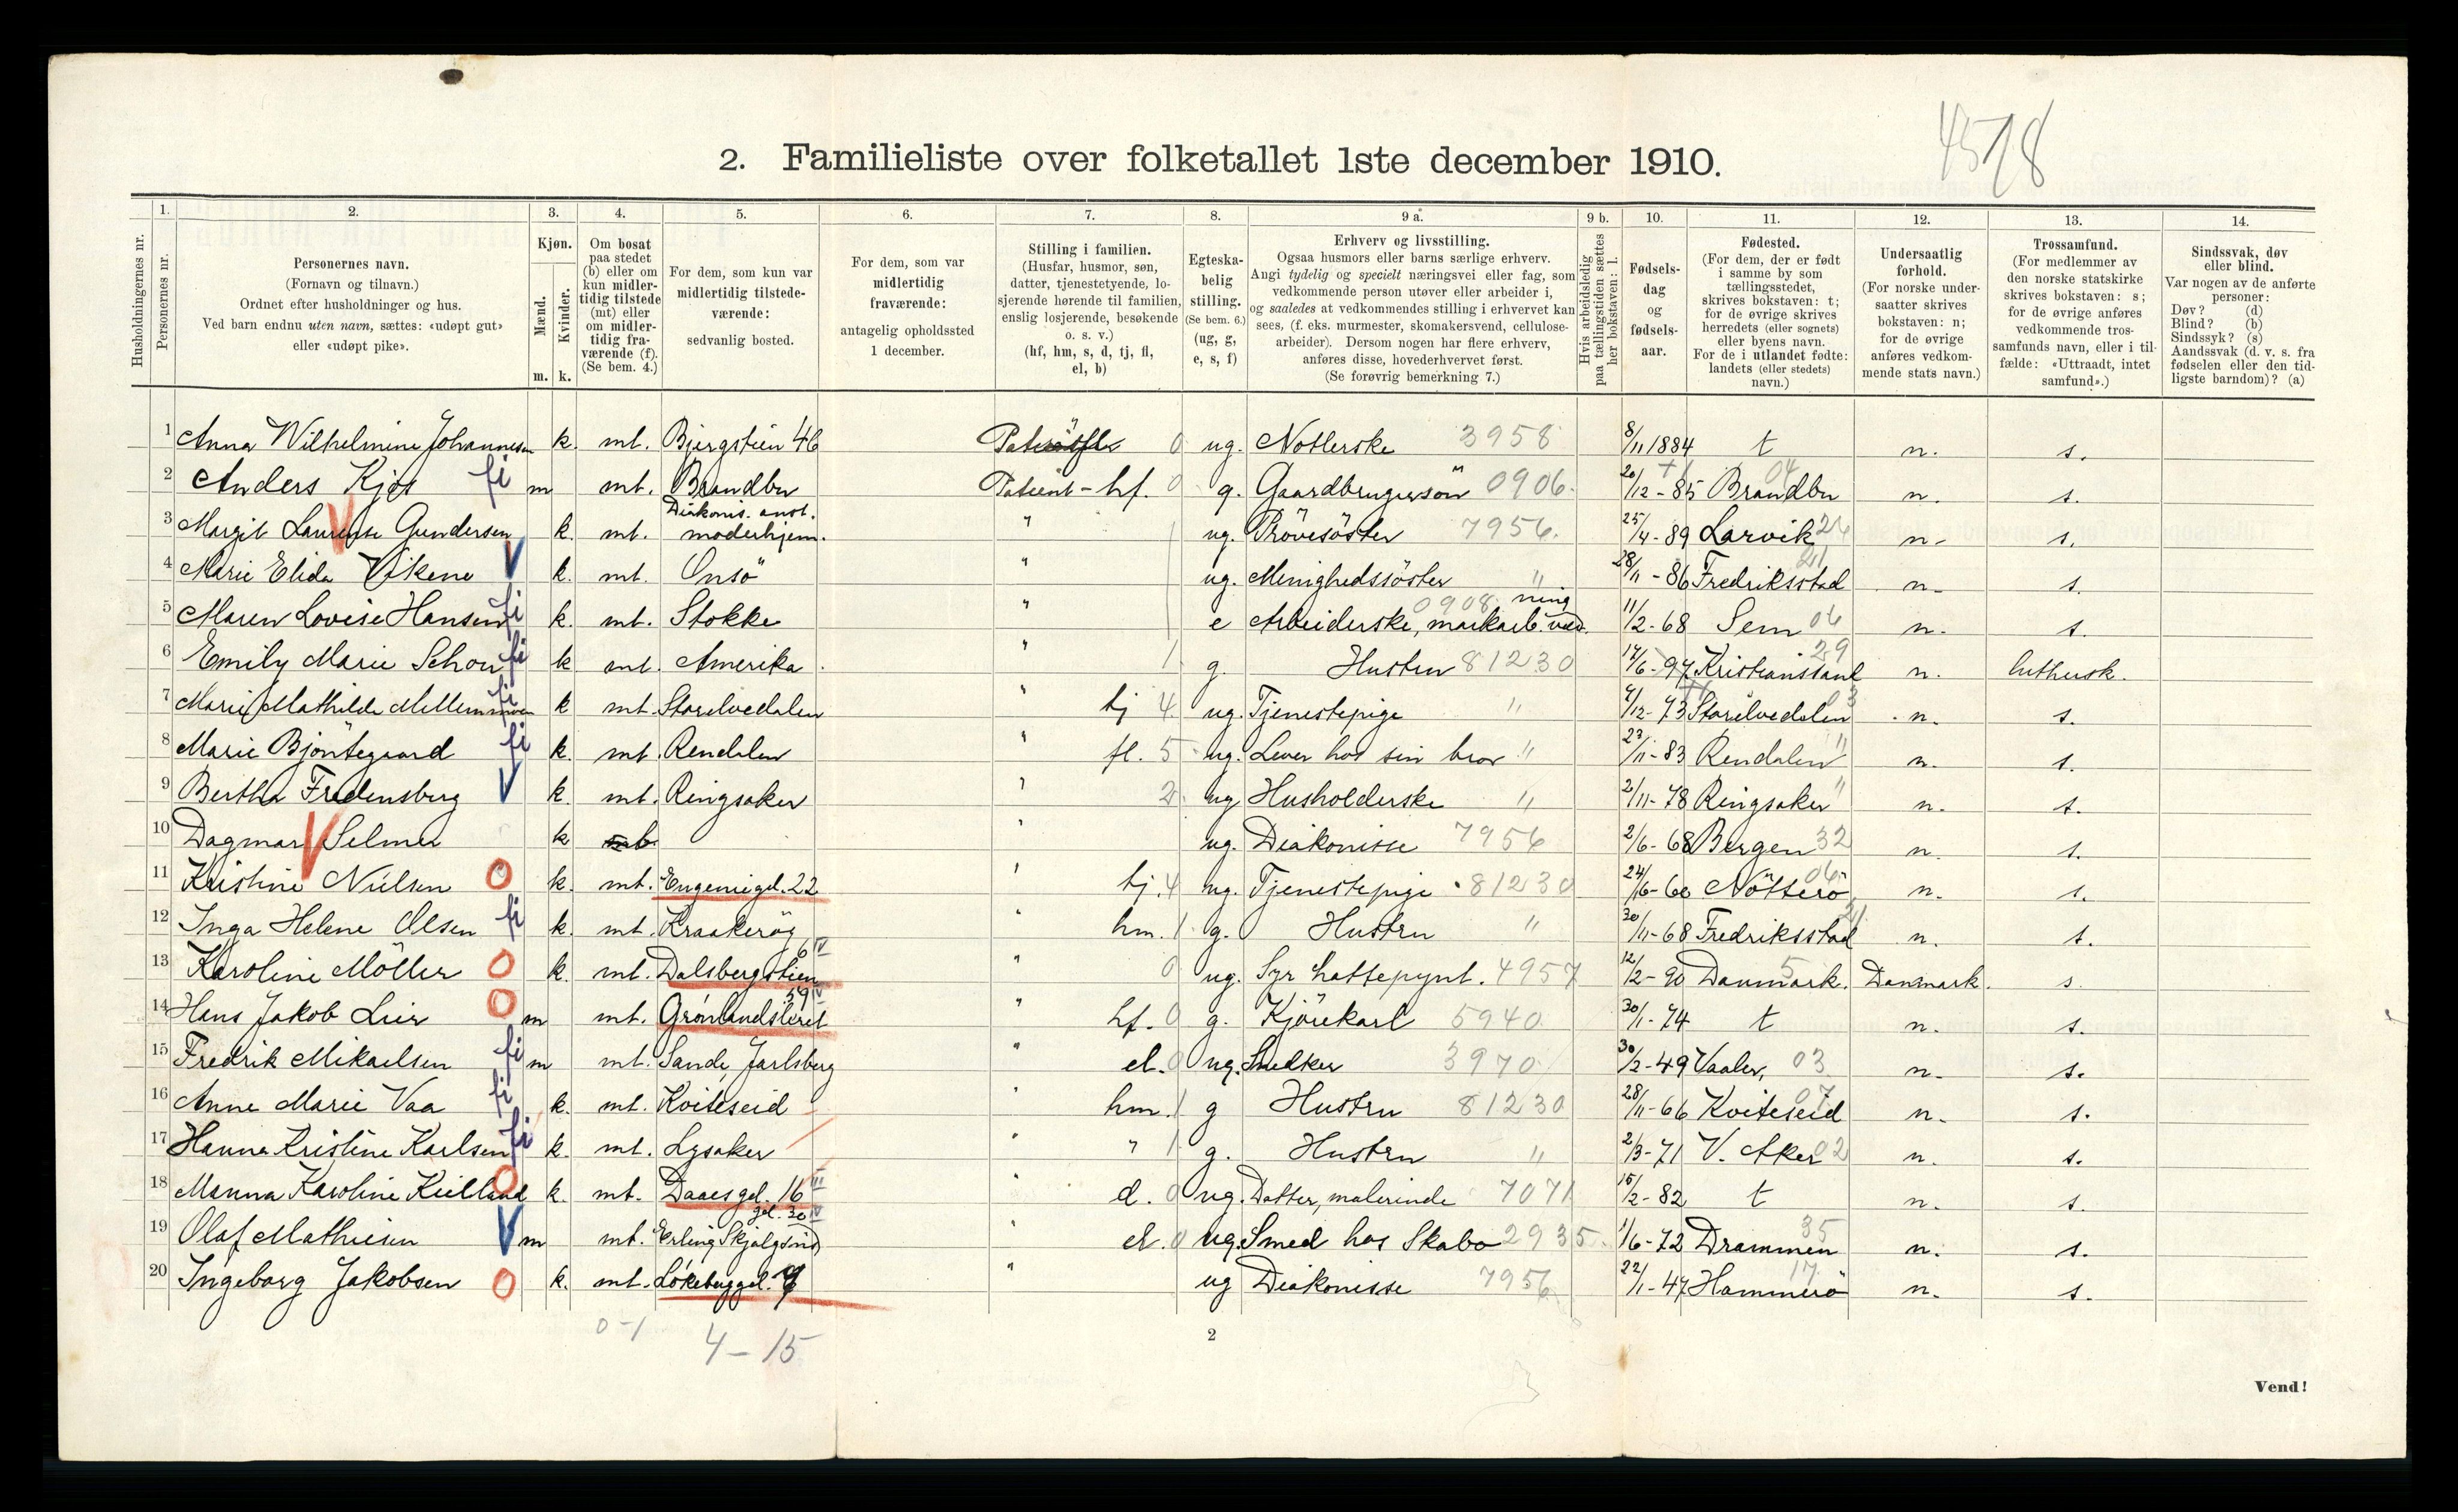 4578
2. Familieliste over folketallet 1ste december 1910.
Husholdningernes nr.
1. Personernes nr.
2. Personernes navn. (Fornavn og tilnavn.) Ordnet efter husholdninger og hus. Ved barn endnu uten navn, sættes: «udøpt gut» eller «udøpt pike».
3. Kjøn. Mænd. m. Kvinder. k.
4. Om bosat paa stedet (b) eller om kun midlertidig tilstede (mt) eller om midlertidig fraværende (f). (Se bem. 4.)
5. For dem, som kun var midlertidig tilstedeværende: sedvanlig bosted.
6. For dem, som var midlertidig fraværende: antagelig opholdssted 1 december.
7. Stilling i familien. (Husfar, husmor, søn, datter, tjenestetyende, losjerende hørende til familien, enslig losjerende, besøkende o. s. v.) (hf, hm, s, d, tj, fl, el, b)
8. Egteskabelig stilling. (Se bem. 6.) (ug, g, e, s, f)
9 a. Erhverv og livsstilling. Ogsaa husmors eller barns særlige erhverv. Angi tydelig og specielt næringsvei eller fag, som vedkommende person utøver eller arbeider i, og saaledes at vedkommendes stilling i erhvervet kan sees, (f. eks. murmester, skomakersvend, cellulosearbeider). Dersom nogen har flere erhverv, anføres disse, hovederhvervet først. (Se forøvrig bemerkning 7.)
9 b. Hvis arbeidsledig paa tællingstiden sættes her bokstaven: l.
10. Fødselsdag og fødselsaar.
11. Fødested. (For dem, der er født i samme by som tællingsstedet, skrives bokstaven: t; for de øvrige skrives herredets (eller sognets) eller byens navn. For de i utlandet fødte: landets (eller stedets) navn.)
12. Undersaatlig forhold. (For norske undersaatter skrives bokstaven: n; for de øvrige anføres vedkommende stats navn.)
13. Trossamfund. (For medlemmer av den norske statskirke skrives bokstaven: s; for de øvrige anføres vedkommende trossamfunds navn, eller i tilfælde: «Uttraadt, intet samfund».)
14. Sindssvak, døv eller blind. Var nogen av de anførte personer: Døv? (d) Blind? (b) Sindssyk? (s) Aandssvak (d. v. s. fra fødselen eller den tidligste barndom)? (a)
1 Anna Wilhelmine Johannesen k. mt. Bjergstien 46 0 ug. Notlerske 3958 8/11 1884 t n. s.
2 Anders Kjos fi m mt. Brandbu Patient - hf. 0 g. Gaardbrugersön 0906 20/12 - 85 Brandbu 04 n. s.
3 Margit Laurense Gundersen k. mt. Diakonis. anst. moderhjem. " ug. Prövesöster 7956. 25/4 - 89 Larvik n. s.
4 Marie Elida Vikene V k. mt. Onsö " ug. Menighedssöster " 28/11 - 86 Fredriksstad 21 n. s.
5 Maren Lovise Hansen fi k. mt. Stokke " e Arbeiderske, markarb. 0908 11/2 - 68 Sem 06 n. s.
6 Emily Marie Schou fi k mt. Amerika " 1 g. Hustru 81230 17/6 - 97 Kristianssand 29 n. luthersk.
7 Marie Mathilde fi k mt. Storelvedalen " tj 4 ug. Tjenestepige " 4/12 - 73 Storelvedalen 03 n. s.
8 Marie Bjöntegaard fi k. mt. Rendalen " fl. 5 ug. Lever hos sin bror " 23/11 - 83 Rendalen " n. s.
9 Bertha Fredensberg V k. mt. Ringsaker " 2 ug Husholderske " 2/11 - 78 Ringsaker " n. s.
10 Dagmar Selmer k b. " ug. Diakonisse 7956 2/6 - 68 Bergen 32 n. s.
11 Kristine Nielsen O k. mt. Eugeniegd. 22 " tj. 4 ug. Tjenestepige 81230 24/6 - 60 Nötterö 06 n. s.
12 Inga Helene Olsen fi k. mt. Kraakeröy " hm. 1 g. Hustru " 30/11 - 68 Fredriksstad 21 n. s.
13 Karoline Möller O k. mt. Dalsbergstien 6 IV " 0 ug. Syr hattepynt. 4957 12/2 - 90 Danmark. 5 Danmark. s
14 Hans Jakob Lier O m mt. Grönlandsleret 59 IV " hf. 0 g. Kjörekarl 5940 30/1 - 74 t n. s.
15 Fredrik Mikaelsen fi m mt. Sande, Jarlsberg " el. 0 ug. Snedker 3970 30/2 - 49 Vaaler, 03 n. s.
16 Anne Marie Vaa fi k. mt. Kviteseid " hm. 1 g Hustru 81230 28/11 - 66 Kviteseid 07 n. s.
17 Hanna Kristine Karlsen fi k. mt. Lysaker " " 1 g. Hustru " 2/3 - 71 V. Aker 02 n. s.
18 Manna Karoline Kielland O k. mt. Daaesgd. 16 III " d. 0 ug. Datter, malerinde 7071 15/2 - 82 t n. s.
19 Olaf Mathiesen V m mt. Erling Skjalgsøns gd. 30 IV " el. 0 ug. Smed hos Skabo 2935 1/6 - 72 Drammen 35 n. s.
20 Ingeborg Jakobsen O k. mt. Lökeberggd. " ug Diakonisse 7956 22/1 - 47 Hammerö 17 n. s.
0 - 1
4 - 15
2
Vend!